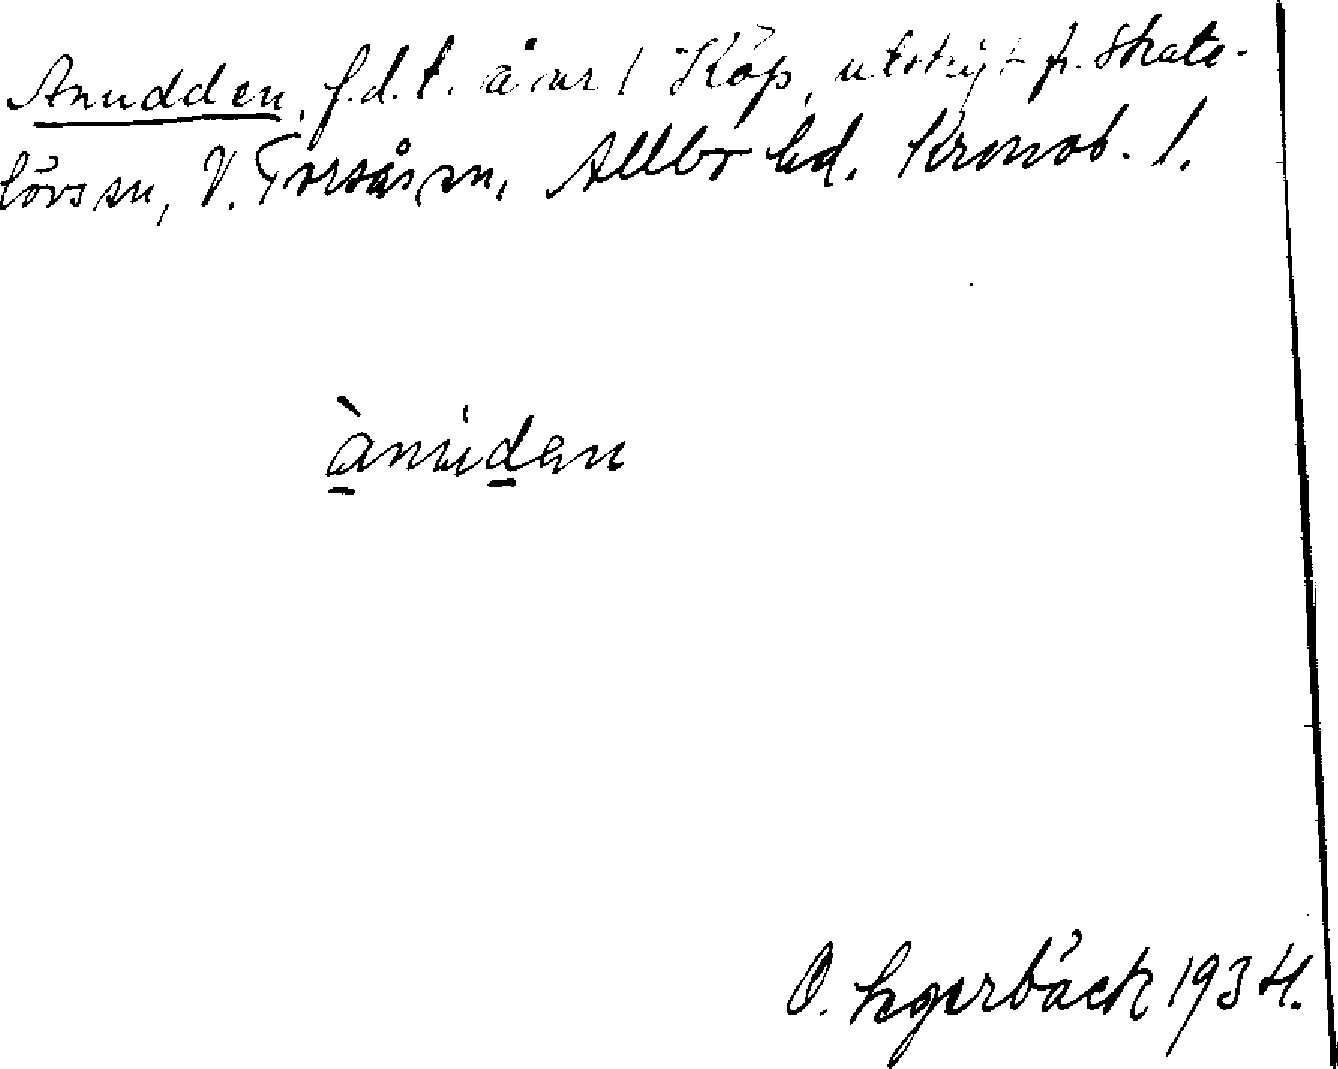 Anudden, f.d.t. å nr 1 Köp, utskijt fr. Skate-
lövs sn, V. Torsås sn, Allbo hd. Kronob. l.
ànuden
O. Lgerbäck 1934.